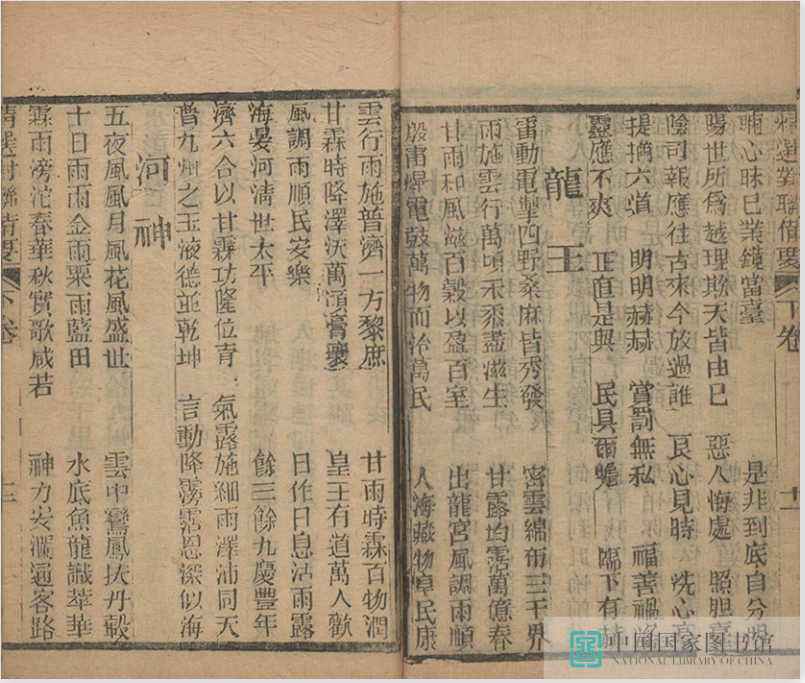 精選對聯備要 下卷 十一
昧己業鏡當臺 是非到底自分明
陽世所為越理欺天皆由己 惡人悔處 照胆臺
陰司報應往古來今放過誰 良心見時 洗心
提摘六道 明明赫赫 賞罰無私 福善禍
靈應不爽 正直是與 民具爾瞻 臨下有赫
龍王
雷動電擊四野桑麻皆秀發 密雲綿布三千界
雨施雲行萬頃禾黍盡滋生 甘露均霑萬億春
甘雨和風滋百穀以盈百室 出龍宮風調雨順
殷雷燁電鼓萬物而治萬民 入海藏物阜民康
雲行雨施普濟一方黎庶 甘雨時霖百物潤
甘霖時降澤沃萬頃膏壤 皇王有道萬人歡
風調雨順民安樂 日作日息沾雨露
海晏河清世太平 餘三餘九慶豐年
濟六合以甘霖功隆位育 氣露施細雨澤沛同天
普九州之玉液德並乾坤 言動降霶霑恩深似海
河神
五夜風風月風花風盛世 雲中鸞鳳扶丹轂
十日雨雨金雨粟雨藍田 水底魚龍識翠華
霖雨滂沱春華秋實歌咸若 神力安瀾通客路
精選對聯備要 下卷 十二
中国国家图书馆
NATIONAL LIBRARY OF CHINA